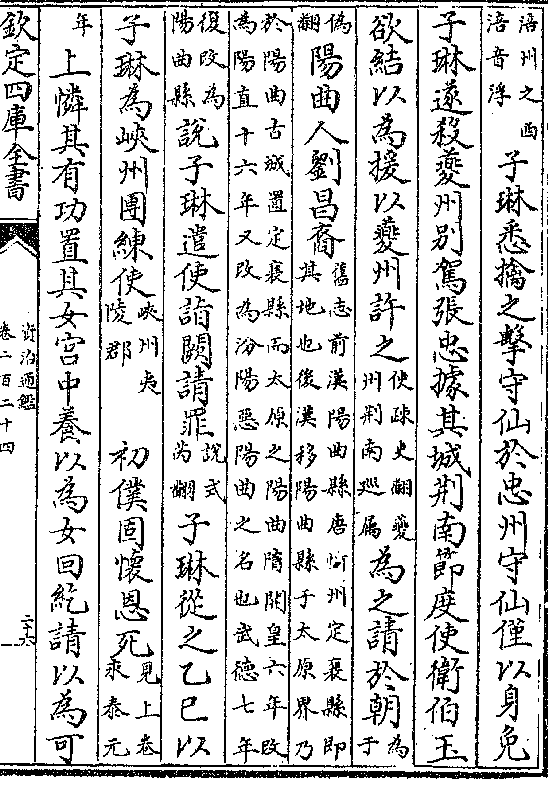 涪州之西涪音浮 子琳悉擒之擊守仙於忠州守仙僅以身免
子琳遂殺夔州别駕張忠據其城荆南節度使衛伯玉
欲結以為援以夔州許之使疎吏翻夔州荆南廵屬為之請於朝為于
偽翻陽曲人劉昌裔舊志前漢陽曲縣唐忻州定襄縣即其地也後漢移陽曲縣于太原界乃
於陽曲古城置定襄縣而太原之陽曲隋開皇六年改為陽直十六年又改為汾陽惡陽曲之名也武德七年
復改為陽曲縣說子琳遣使詣闕請罪說式芮翻子琳從之乙巳以
子琳為峽州團練使峽州夷陵郡 初僕固懷恩死見上卷永泰元
年 上憐其有功置其女宫中養以為女回紇請以為可
欽定四庫全書
資治通鑑
卷二百二十四
二十六